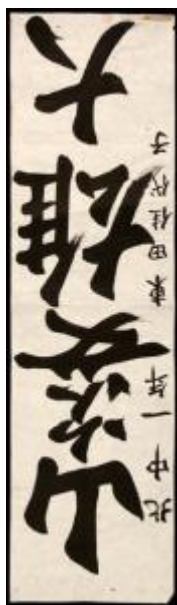 山姿雄大
北中一年 東田佳代子